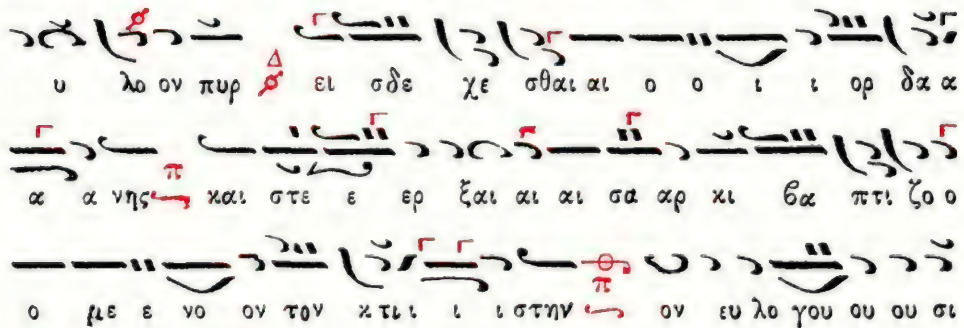 υ λο ον πυρ Δ ει σδε χε σθαι αι ο ο ι ι ορ δα α
α α νης π και στε ε ερ ξαι αι αι σα αρ κι βα πτι ζο ο
ο με ε νο ον τον κτι ι ι ι στην π ον ευ λο γου ου ου σι